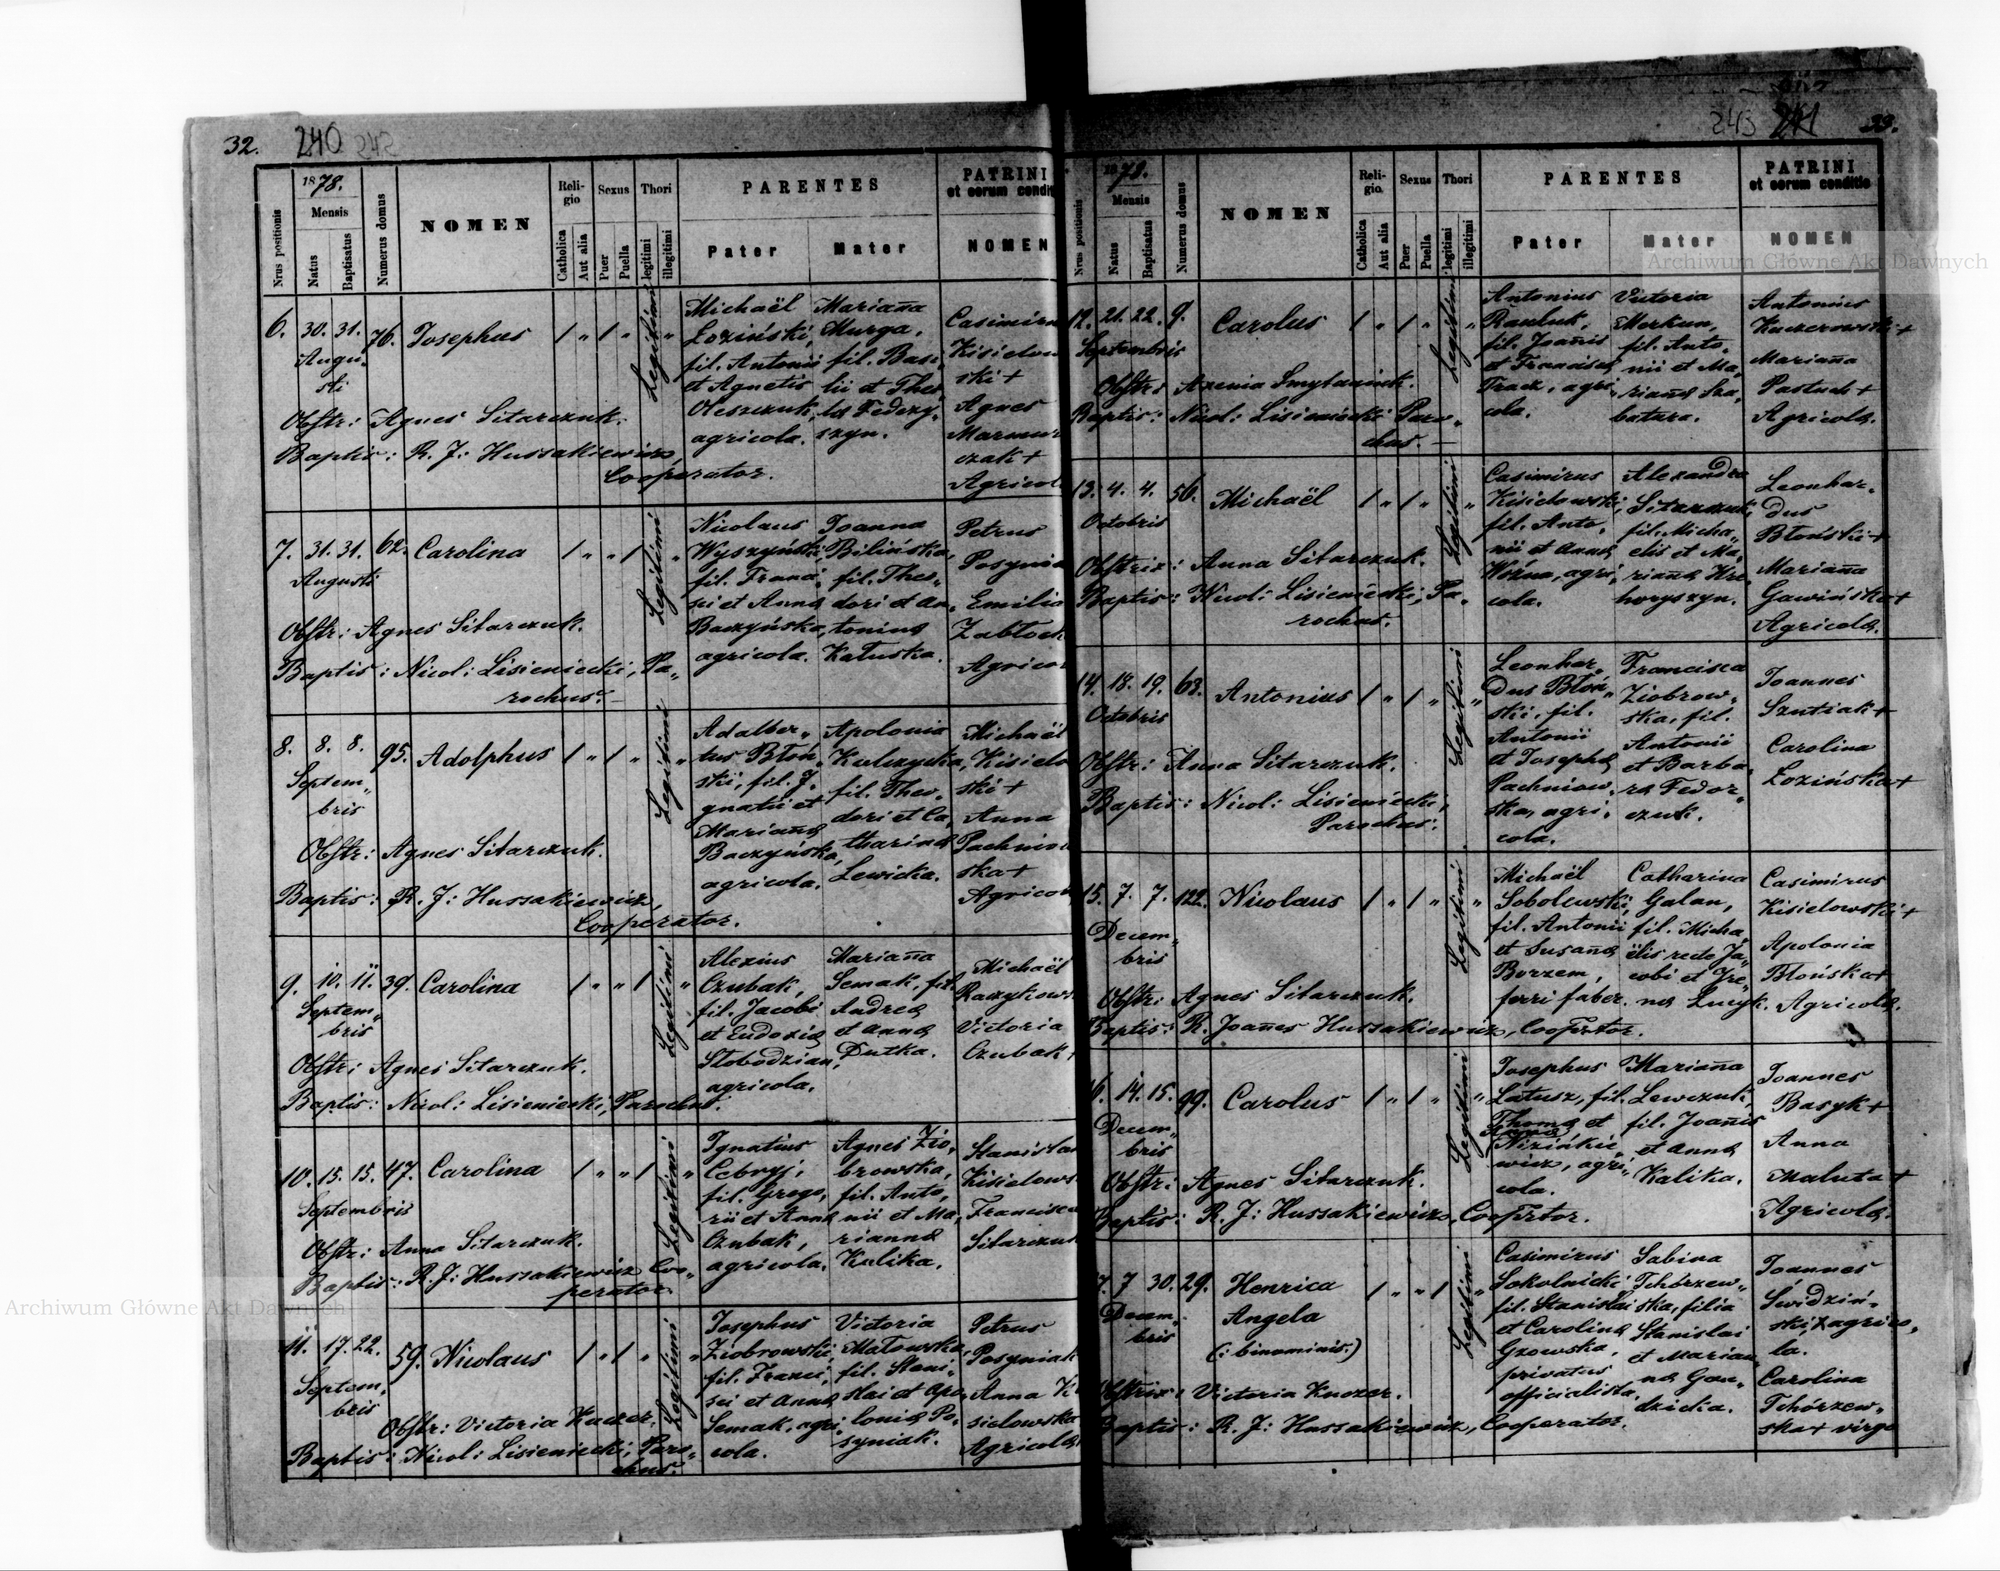 32. 240 242
1878.
Mensis
Nrus positionis
Natus
Baptisatus
Numerus domus
NOMEN
Reli-
gio
Catholica
Aut alia
Sexus
Puer
Puella
Thori
legitimi
illegitimi
PARENTES
Pater
Mater
PATRINI
et eorum condit
NOMEN
6. 30. 31. 76. Josephus
Augu-
sti
Legitimi
Michaël
Loziński,
fil. Antonii
et Agnetis
Oleszczuk,
agricola.
Mariana
Murga,
fil. Basi-
lii et Thec-
la Fedczy-
szyn.
Casimirus
Kisielow
ski +
Agnes
Marmur
czak +
Agricol
Obstr: Agnes Sitarczuk.
Baptis: R. J: Hussakiewicz,
Cooperator.
7. 31. 31. 62. Carolina
Augusti
Legitimi
Nicolaus
Wyszyński,
fil. Franci-
sci et Anna
Baczyńska,
agricola.
Joanna
Bilińska,
fil. Theo-
dori et An-
tonina
Katuska.
Petrus
Posynia
Emilia
Zabłock
Agrico
Obstr: Agnes Sitarczuk.
Baptis: Nicol: Lisieniecki, Pa-
rochus.
8. 8. 8. 95. Adolphus
Septem-
bris
Legitimi
Adalber-
tus Błoń-
ski, fil. J-
gnatii et
Mariana
Baczyńska,
agricola.
Apolonia
Kulczycka,
fil. Theo-
dori et Ca-
tharina
Lewicka.
Michaël
Kisielo
ski +
Anna
Pachnio
ska +
Agrico
Obstr: Agnes Sitarczuk.
Baptis: R. J: Hussakiewicz,
Cooperator.
9. 10. 11. 39. Carolina
Septem-
bris
Legitimi
Alexius
Czubak,
fil. Jacobi
et Eudoxia
Słobodzian,
agricola.
Mariana
Semak, fil.
Andrea
et Anna
Dutka.
Michaël
Raczykows
Victoria
Czubak
Obstr: Agnes Sitarczuk.
Baptis: Nicol: Lisieniecki, Parochus.
10. 15. 15. 47. Carolina
Septembris
Legitimi
Ignatius
Cebryj,
fil. Grego-
rii et Anna
Czubak,
agricola.
Agnes Zio-
browska,
fil. Anto-
nii et Ma-
rianna
Kalika.
Stanislau
Kisielows
Francisca
Sitarczuk
Obstr: Anna Sitarczuk.
Baptis: R. J: Hussakiewicz Coo-
perator.
11. 17. 22. 59. Nicolaus
Septem-
bris
Legitimi
Josephus
Ziobrowski,
fil. Franci-
sci et Anna
Semak, agri-
cola.
Victoria
Matowska,
fil. Stani-
slai et Apo-
lonia Po-
syniak.
Petrus
Posyniak
Anna Ki
sielowska
Agricola
Obstr: Victoria Kuczer.
Baptis: Nicol: Lisieniecki, Paro-
chus.
243 241 33.
1878.
Mensis
Nrus positionis
Natus
Baptisatus
Numerus domus
NOMEN
Reli-
gio.
Catholica
Aut alia
Sexus
Puer
Puella
Thori
legitimi
illegitimi
PARENTES
Pater
Mater
PATRINI
et eorum conditio
NOMEN
12. 21. 22. 9. Carolus
Septembris
Legitimi
Antonius
fil. Joanis
et Francisca
Tracz, agri-
cola.
Victoria
Merkun,
fil. Anto-
nii et Ma-
riana Sza-
batura.
Antonius
Kaczorowski +
Mariana
Pastuch +
Agricola.
Obstr: Axenia Smytaniuk.
Baptis: Nicol: Lisieniecki Paro-
chus.
13. 4. 4. 56. Michaël
Octobris
Legitimi
Casimirus
Kisielowski,
fil. Anto-
nii et Anna
Woźna, agri-
cola.
Alexandra
Sitarczuk,
fil. Micha-
elis et Ma-
riana Hre-
horyszyn.
Leonhar-
dus
Błoński +
Mariana
Gawińska +
Agricola.
Obstrix: Anna Sitarczuk.
Baptis: Nicol: Lisieniecki, Pa-
rochus.
14. 18. 19. 63. Antonius
Octobris
Legitimi
Leonhar-
dus Błoń-
ski, fil.
Antonii
et Josepha
Pachniow-
ska, agri-
cola.
Francisca
Ziobrow-
ska, fil.
Antonii
et Barba-
ra Fedor-
czuk.
Joannes
Szutiak +
Carolina
Lozińska +
Obstr: Anna Sitarczuk.
Baptis: Nicol: Lisieniecki,
Parochus.
15. 7. 7. 122. Nicolaus
Decem-
bris
Legitimi
Michaël
Sobolewski,
fil. Antonii
et Susana
Borzem,
ferri faber.
Catharina
Galan,
fil. Micha-
ëlis recte Ja-
cobi et Ire-
na Lucyk.
Casimirus
Kisielowski +
Apolonia
Błońska +
Agricola.
Obstr: Agnes Sitarczuk.
Baptis: R. Joanes Hussakiewicz, Cooprtor.
16. 14. 15. 99. Carolus
Decem-
bris
Legitimi
Josephus
Latusz, fil.
Thoma et
Nizinkie-
wicz, agri-
cola.
Mariana
Lewczuk,
fil. Joanis
et Anna
Kalika.
Joannes
Basyk +
Anna
Maluta +
Agricola.
Obstr: Agnes Sitarczuk.
Baptis: R. J: Hussakiewicz, Cooprtor.
17. 7 30. 29. Henrica
Decem-
bris
Angela
(: binominis:)
Legitimi
Casimirus
Sokolnicki
fil. Stanislai
et Carolina
Gzowska,
privatus
officialista.
Sabina
Tchórzew-
ska, filia
Stanislai
et Marian-
na Gau-
dzicka.
Joannes
Świdziń-
ski, + agrico-
la.
Carolina
Tchórzew-
ska + virgo
Obstrix: Victoria Kuczer.
Baptis: R. J: Hussakiewicz, Cooperator.
Archiwum Główne Akt Dawnych
Archiwum Główne Akt Dawnych